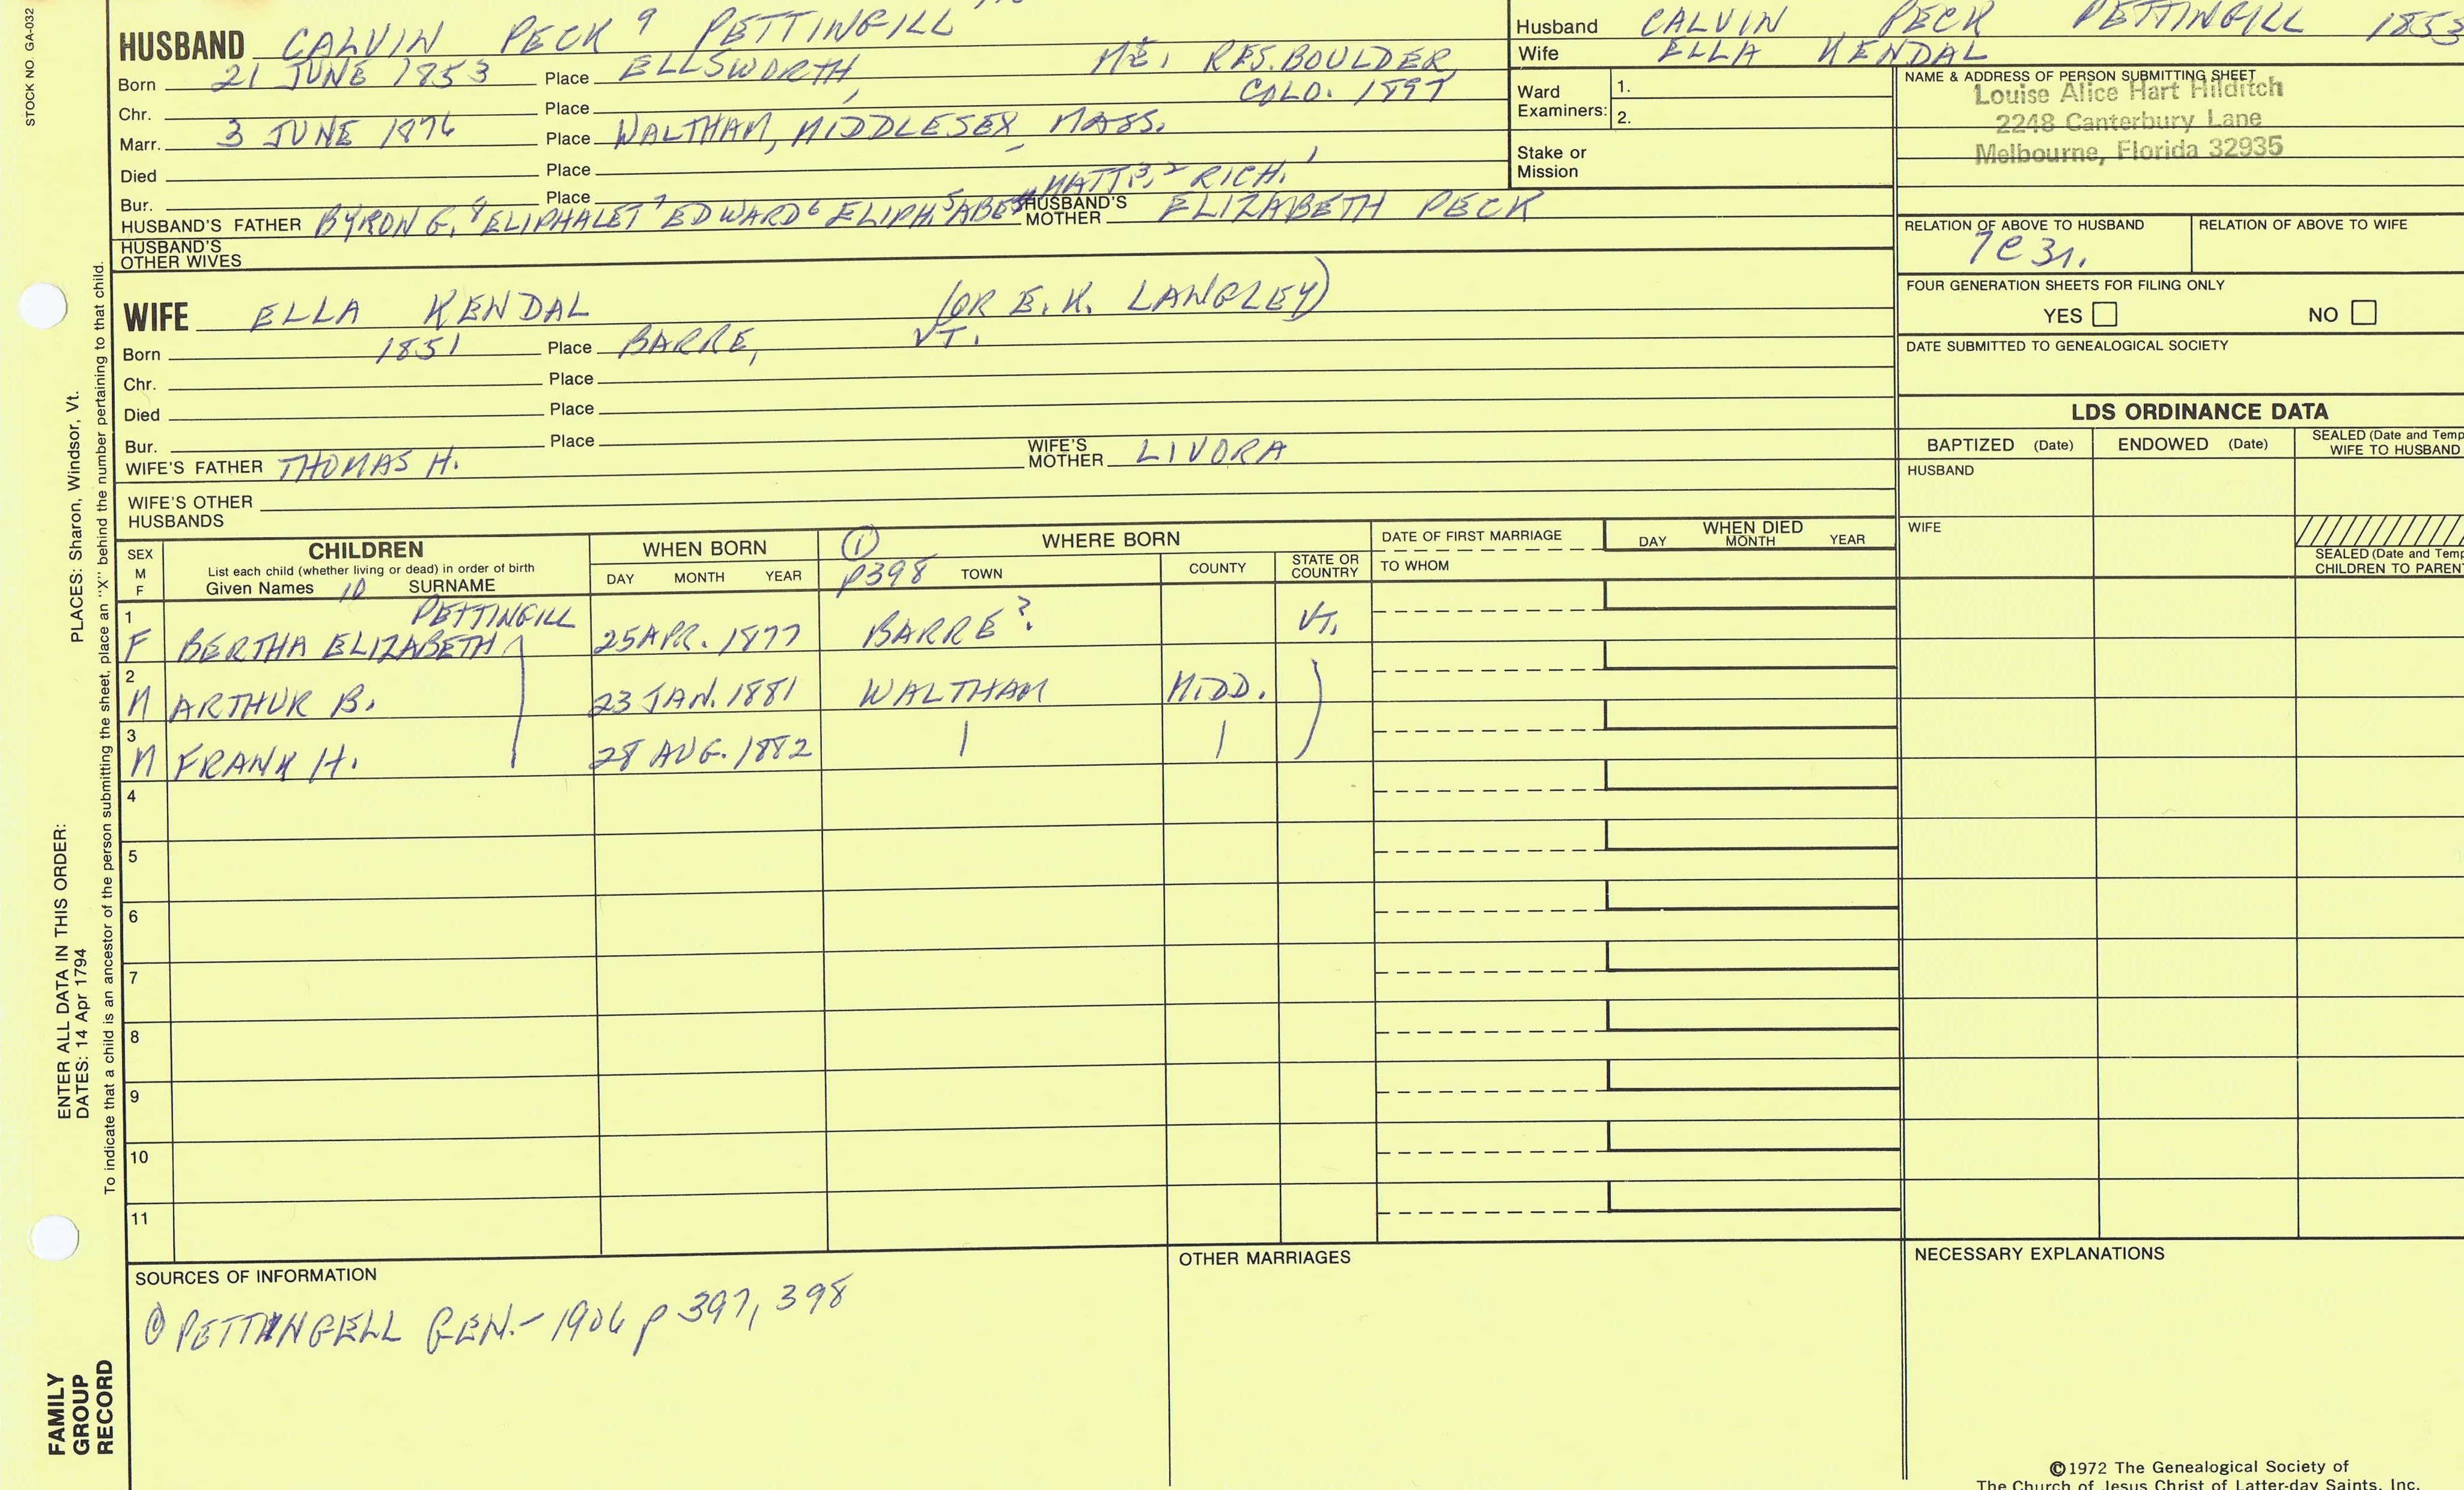 STOCK NO. GA-032
HUSBAND CALVIN PECK 9 PETTINGILL
Born 21 JUNE 1853 Place ELLSWORTH, ME. RES. BOULDER
Chr. Place COLO. 1897
Marr. 3 JUNE 1876 Place WALTHAM, MIDDLESEX, MASS.
Died Place
Bur. Place MATT.3, 2 RICH. 1
HUSBAND'S FATHER BYRON G. 8 ELIPHALET 7 EDWARD 6 ELIPH. 5 ABE HUSBAND'S MOTHER ELIZABETH PECK
HUSBAND'S OTHER WIVES
WIFE ELLA KENDAL (OR E. K. LANGLEY)
Born 1851 Place BARRE, VT.
Chr. Place
Died Place
Bur. Place
WIFE'S FATHER THOMAS H. WIFE'S MOTHER LIVORA
WIFE'S OTHER HUSBANDS
Husband CALVIN PECK PETTINGILL 1853
Wife ELLA KENDAL
Ward Examiners: 1.
2.
Stake or Mission
NAME & ADDRESS OF PERSON SUBMITTING SHEET
Louise Alice Hart Hilditch
2248 Canterbury Lane
Melbourne, Florida 32935
RELATION OF ABOVE TO HUSBAND RELATION OF ABOVE TO WIFE
7C3r.
FOUR GENERATION SHEETS FOR FILING ONLY
YES NO
DATE SUBMITTED TO GENEALOGICAL SOCIETY
LDS ORDINANCE DATA
BAPTIZED (Date) ENDOWED (Date) SEALED (Date and Temp
WIFE TO HUSBAND
HUSBAND
WIFE
SEALED (Date and Temp
CHILDREN TO PAREN
SEX M F
CHILDREN
List each child (whether living or dead) in order of birth
Given Names 10 SURNAME
WHEN BORN
DAY MONTH YEAR
① WHERE BORN
p398 TOWN COUNTY STATE OR COUNTRY
DATE OF FIRST MARRIAGE
TO WHOM
WHEN DIED
DAY MONTH YEAR
PETTINGILL
1 F BERTHA ELIZABETH 25 APR. 1877 BARRE ? VT.
2 M ARTHUR B. 23 JAN. 1881 WALTHAM MIDD.
3 M FRANK H. 28 AUG. 1882
4
5
6
7
8
9
10
11
SOURCES OF INFORMATION
① PETTINGELL GEN. - 1906 p 397, 398
OTHER MARRIAGES
NECESSARY EXPLANATIONS
©1972 The Genealogical Society of
The Church of Jesus Christ of Latter-day Saints, Inc.
PLACES: Sharon, Windsor, Vt.
To indicate that a child is an ancestor of the person submitting the sheet, place an "X" behind the number pertaining to that child.
ENTER ALL DATA IN THIS ORDER:
DATES: 14 Apr 1794
FAMILY GROUP RECORD